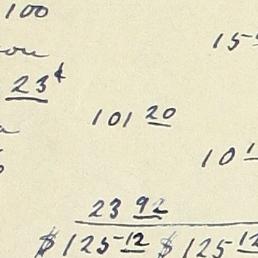 100
15
23¢
101 20
10 1
23 92
$125-12 $125-12